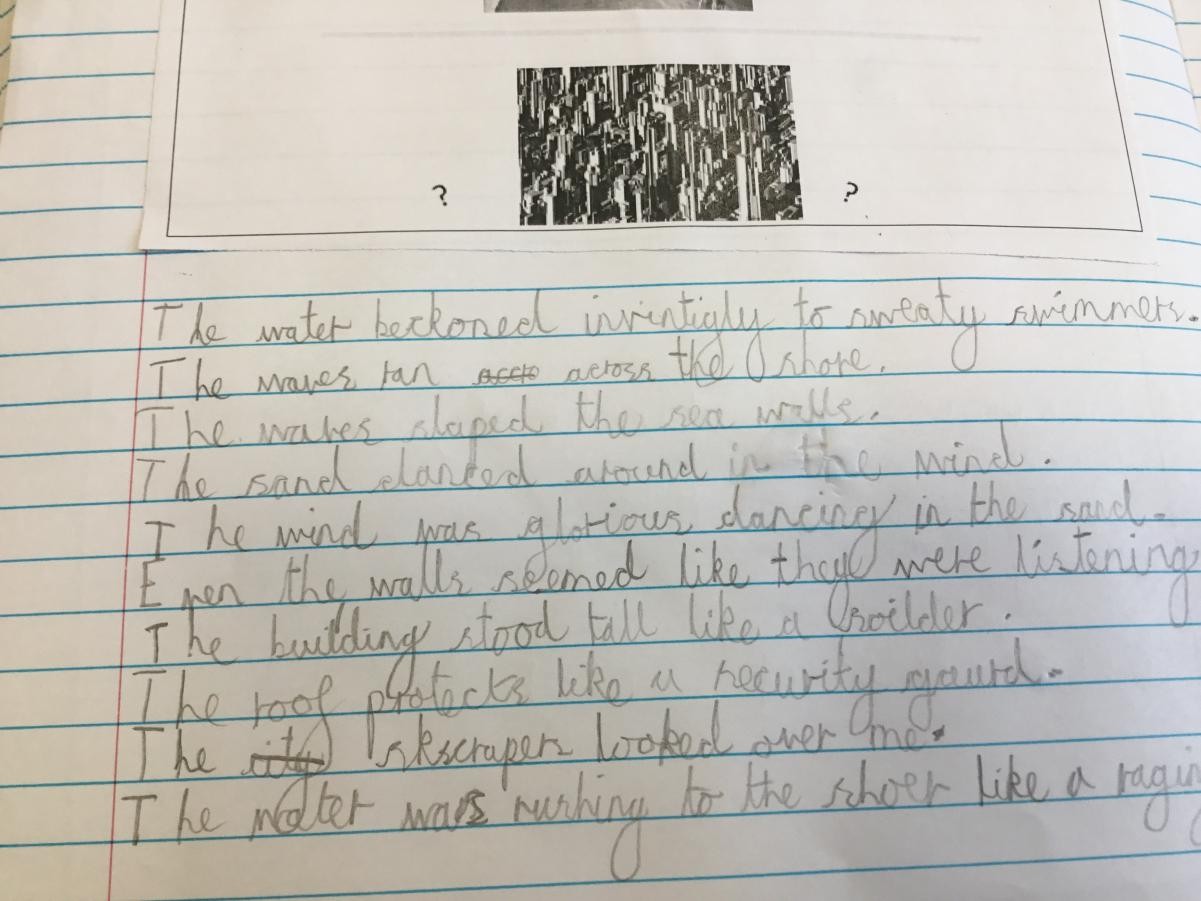 ? ?
The water beckoned invintigly to sweaty swimmers.
The waves ran across the shore.
The waves slaped the sea walls.
The sand danced around in the wind.
The wind was glorious dancing in the sand.
Even the walls seemed like they were listening
The building stood tall like a soilder.
The roof protects like a security gaurd.
The city skscraper looked over me.
The water was rushing to the shoer like a ragin